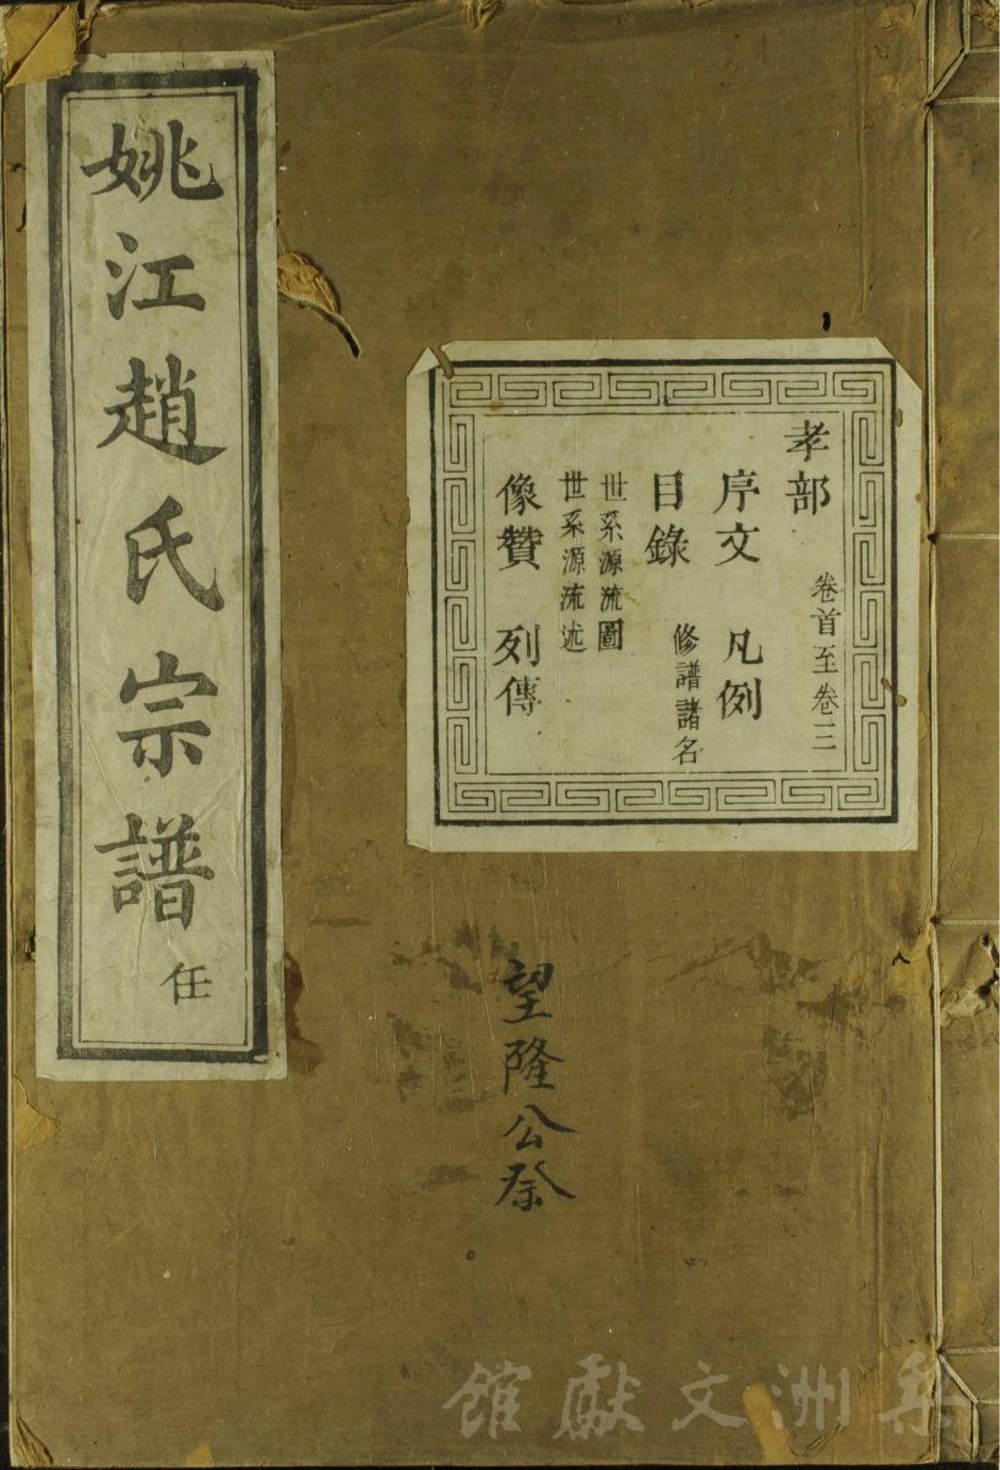 姚江趙氏宗譜 任
孝部 卷首至卷三
序文 凡例
目錄 修譜諸名
世系源流圖
世系源流述
像贊 列傳
望隆公祭
梨洲文獻館